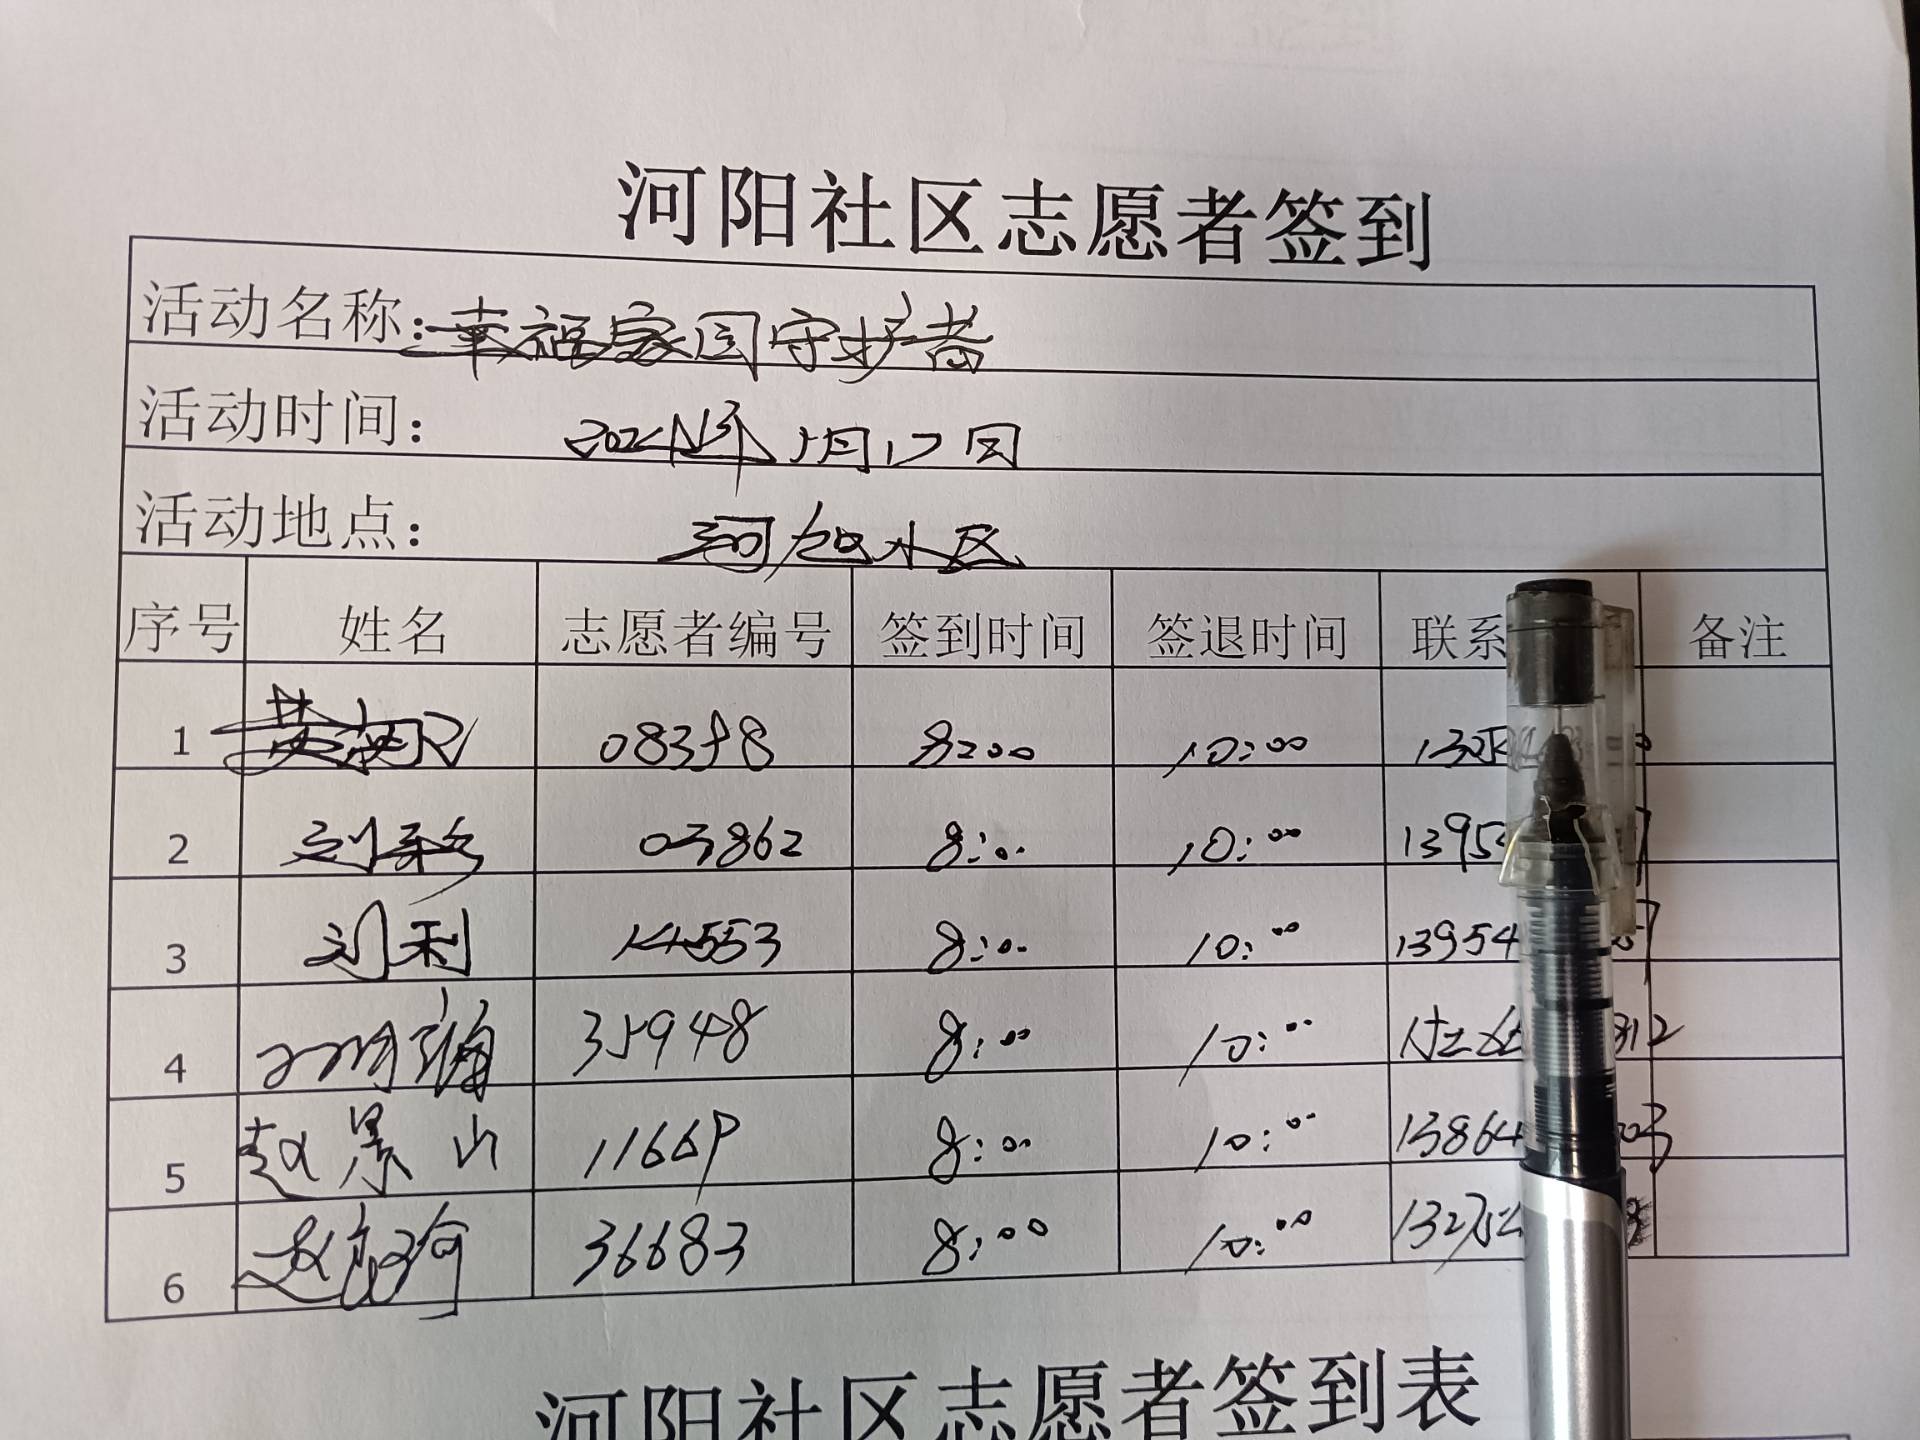 河阳社区志愿者签到
活动名称：幸福家园守护者
活动时间： 2024年1月17日
活动地点： 河阳小区
序号 姓名 志愿者编号 签到时间 签退时间 联系 备注
1 08358 8:00 10:00 130
2 刘 03862 8:00 10:00 1395
3 刘利 14553 8:00 10:00 13954
4 35948 8:00 10:00 312
5 赵景山 11669 8:00 10:00 13864 03
6 赵 河 36683 8:00 10:00 132
河阳社区志愿者签到表